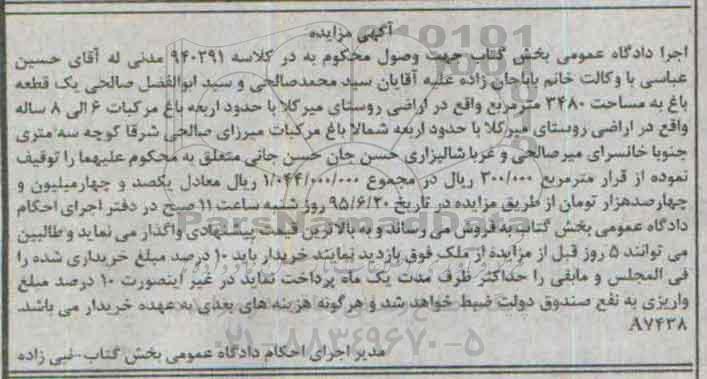 آگهی مزایده
اجرا دادگاه عمومی بخش گتاب جهت وصول محکوم به در کلاسه ۹۴۰۳۹۱ مدنی له آقای حسین
عباسی با وکالت خانم باباجان زاده علیه آقایان سید محمدصالحی و سید ابوالفضل صالحی یک قطعه
باغ به مساحت ۳۴۸۰ مترمربع واقع در اراضی روستای میرکلا با حدود اربعه باغ مرکبات ۶ الی ۸ ساله
واقع در اراضی روستای میرکلا با حدود اربعه شمالا باغ مرکبات میرزای صالحی شرقا کوچه سه متری
جنوبا خانسرای میرصالحی و غربا شالیزاری حسن جان حسن جانی متعلق به محکوم علیهما را توقیف
نموده از قرار مترمربع ۳۰۰/۰۰۰ ریال در مجموع ۱/۰۴۴/۰۰۰/۰۰۰ ریال معادل یکصد و چهارمیلیون و
چهارصدهزار تومان از طریق مزایده در تاریخ ۹۵/۶/۲۰ روز شنبه ساعت ۱۱ صبح در دفتر اجرای احکام
دادگاه عمومی بخش گتاب به فروش می رساند و به بالاترین قیمت پیشنهادی واگذار می نماید و طالبین
می توانند ۵ روز قبل از مزایده از ملک فوق بازدید نمایند خریدار باید ۱۰ درصد مبلغ خریداری شده را
فی المجلس و مابقی را حداکثر ظرف مدت یک ماه پرداخت نماید در غیر اینصورت ۱۰ درصد مبلغ
واریزی به نفع صندوق دولت ضبط خواهد شد و هرگونه هزینه های بعدی به عهده خریدار می باشد.
۸۷۴۳۸
مدیر اجرای احکام دادگاه عمومی بخش گتاب-نبی زاده
ParsNamadData
۰۲۱-۸۸۳۴۹۶۷۰-۵